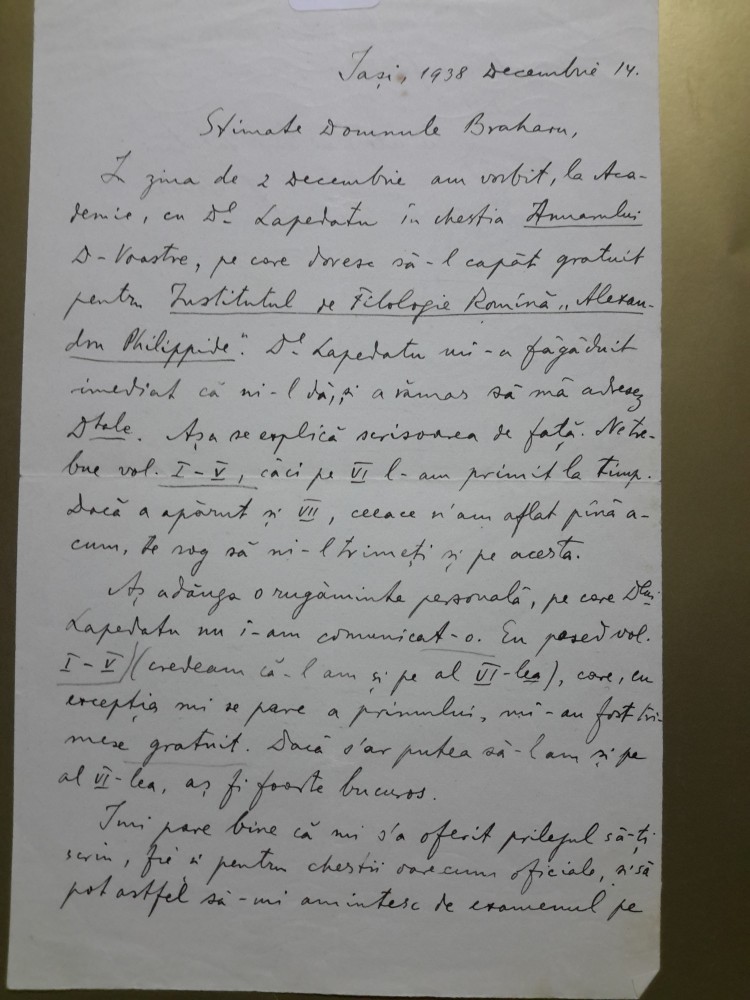 Iași, 1938 Decembrie 14.
Stimate Domnule Braharu,
În ziua de 2 Decembrie am vorbit, la Aca-
demie, cu Dl Lapedatu în chestia Anuarului
D-Voastre, pe care doresc să-l capăt gratuit
pentru Institutul de Filologie Romînă „Alexan-
dru Philippide". Dl Lapedatu mi-a făgăduit
imediat că ni-l dă, și a rămas să mă adresez
Dtale. Așa se explică scrisoarea de față. Ne tre-
bue vol. I-V, căci pe VI l-am primit la timp.
Dacă a apărut și VII, ceeace n'am aflat pînă a-
cum, te rog să ni-l trimeți și pe acesta.
Aș adăuga o rugăminte personală, pe care Dlui
Lapedatu nu i-am comunicat-o. Eu posed vol.
I-V (credeam că-l am și pe al VI-lea), care, cu
excepția mi se pare a primului, mi-au fost tri-
mese gratuit. Dacă s'ar putea să-l am și pe
al VI-lea, aș fi foarte bucuros.
Îmi pare bine că mi s'a oferit prilejul să-ți
scriu, fie și pentru chestii oarecum oficiale, și să
pot astfel să-mi amintesc de examenul pe